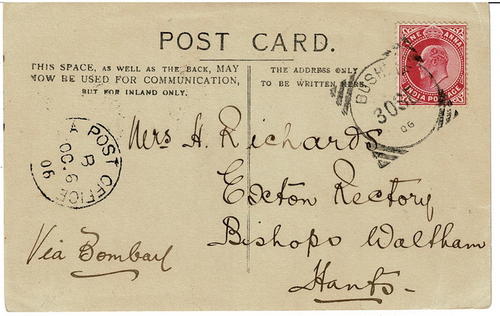 POST CARD.
THIS SPACE, AS WELL AS THE BACK, MAY
NOW BE USED FOR COMMUNICATION,
BUT FOR INLAND ONLY.
THE ADDRESS ONLY
TO BE WRITTEN HERE.
ONE ANNA
INDIA POSTAGE
BUSH
30
06
A POST OFFICE
B
OC. 6
06
Mrs H. Richards
Exton Rectory
Bishops Waltham
Hants.
Via Bombay